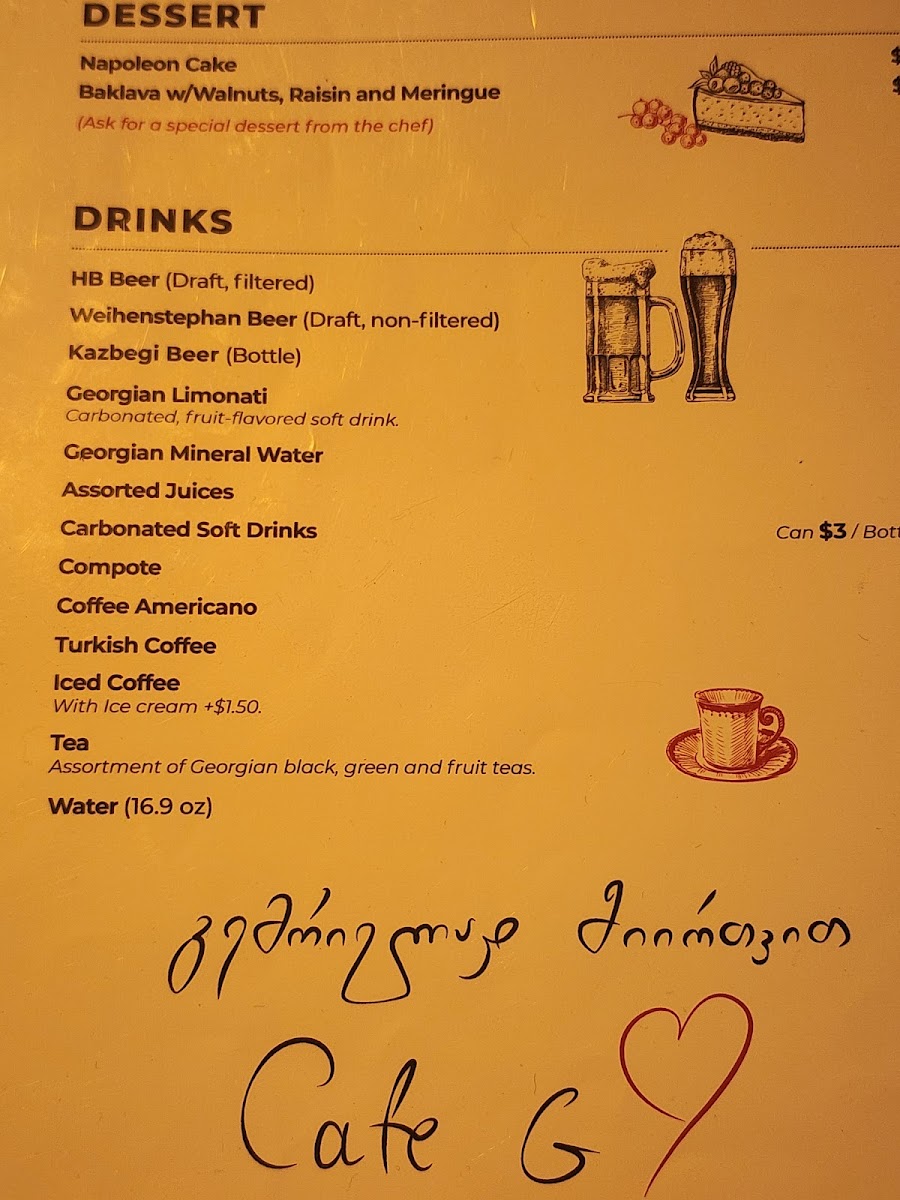 DESSERT
Napoleon Cake $
Baklava w/Walnuts, Raisin and Meringue $
(Ask for a special dessert from the chef)
DRINKS
HB Beer (Draft, filtered)
Weihenstephan Beer (Draft, non-filtered)
Kazbegi Beer (Bottle)
Georgian Limonati
Carbonated, fruit-flavored soft drink.
Georgian Mineral Water
Assorted Juices
Carbonated Soft Drinks Can $3 / Bott
Compote
Coffee Americano
Turkish Coffee
Iced Coffee
With Ice cream +$1.50.
Tea
Assortment of Georgian black, green and fruit teas.
Water (16.9 oz)
გემრიელად მიირთვით
Cafe G